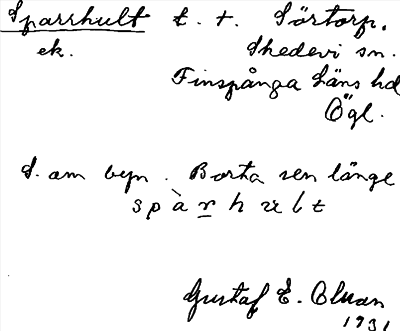 Sparrhult t. t. Sörtorp.
ek. Skedevi sn.
Finspånga läns hd
Ögl.
S. om byn. Borta sen länge
spàrhult
Gustaf E. Oluan
1931